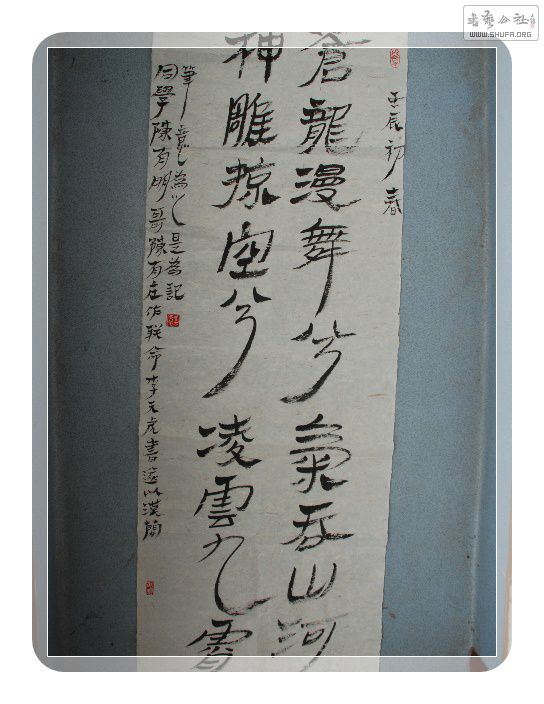 壬辰初春
蒼龍漫舞兮氣吞山河
神雕掠空兮凌雲九霄
同學陳有明哥陳有庄作联命李天虎書遂以漢簡
筆意為之是為記
書藝公社
WWW.SHUFA.ORG